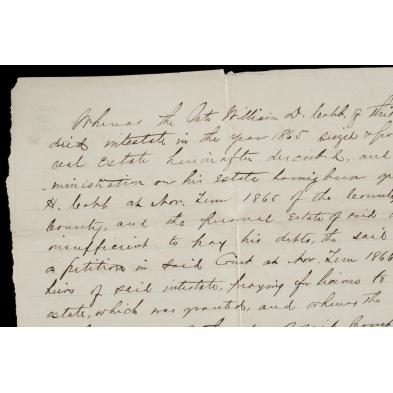 Whereas the late William D. Cobb, of this
died intestate in the year 1865 seized & po
real estate hereinafter described, and
ministration on his Estate having been gr
H. Cobb at Nov. Term 1865 of the County
County, and the personal Estate of said in
insufficient to pay his debts, the said
a petition in said Court at Nov. Term 1866
heirs of said intestate, praying for license to
estate, which was granted, and whereas the